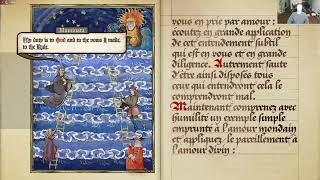 Illuminata
My duty is to God and to the vows I made
to the Rule.
vous en prie par amour :
écoutez en grande application
de cet entendement subtil
qui est en vous et en grande
diligence. Autrement saute
d'être ainsi disposés tous
ceux qui entendront cela le
comprendront mal.
Maintenant comprenez avec
humilité un exemple simple
emprunté à l'amour mondain
et appliquez-le pareillement à
l'amour divin :